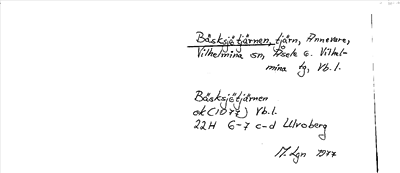 Båsksjötjärnen, tjärn, Annevare,
Vilhelmina sn, Åsele o. Vilhel-
mina tg, Vb.l.
Båsksjötjärnen
ek (1077) Vb.l.
22H 6-7 c-d Ulvoberg
M. Lgn 1977